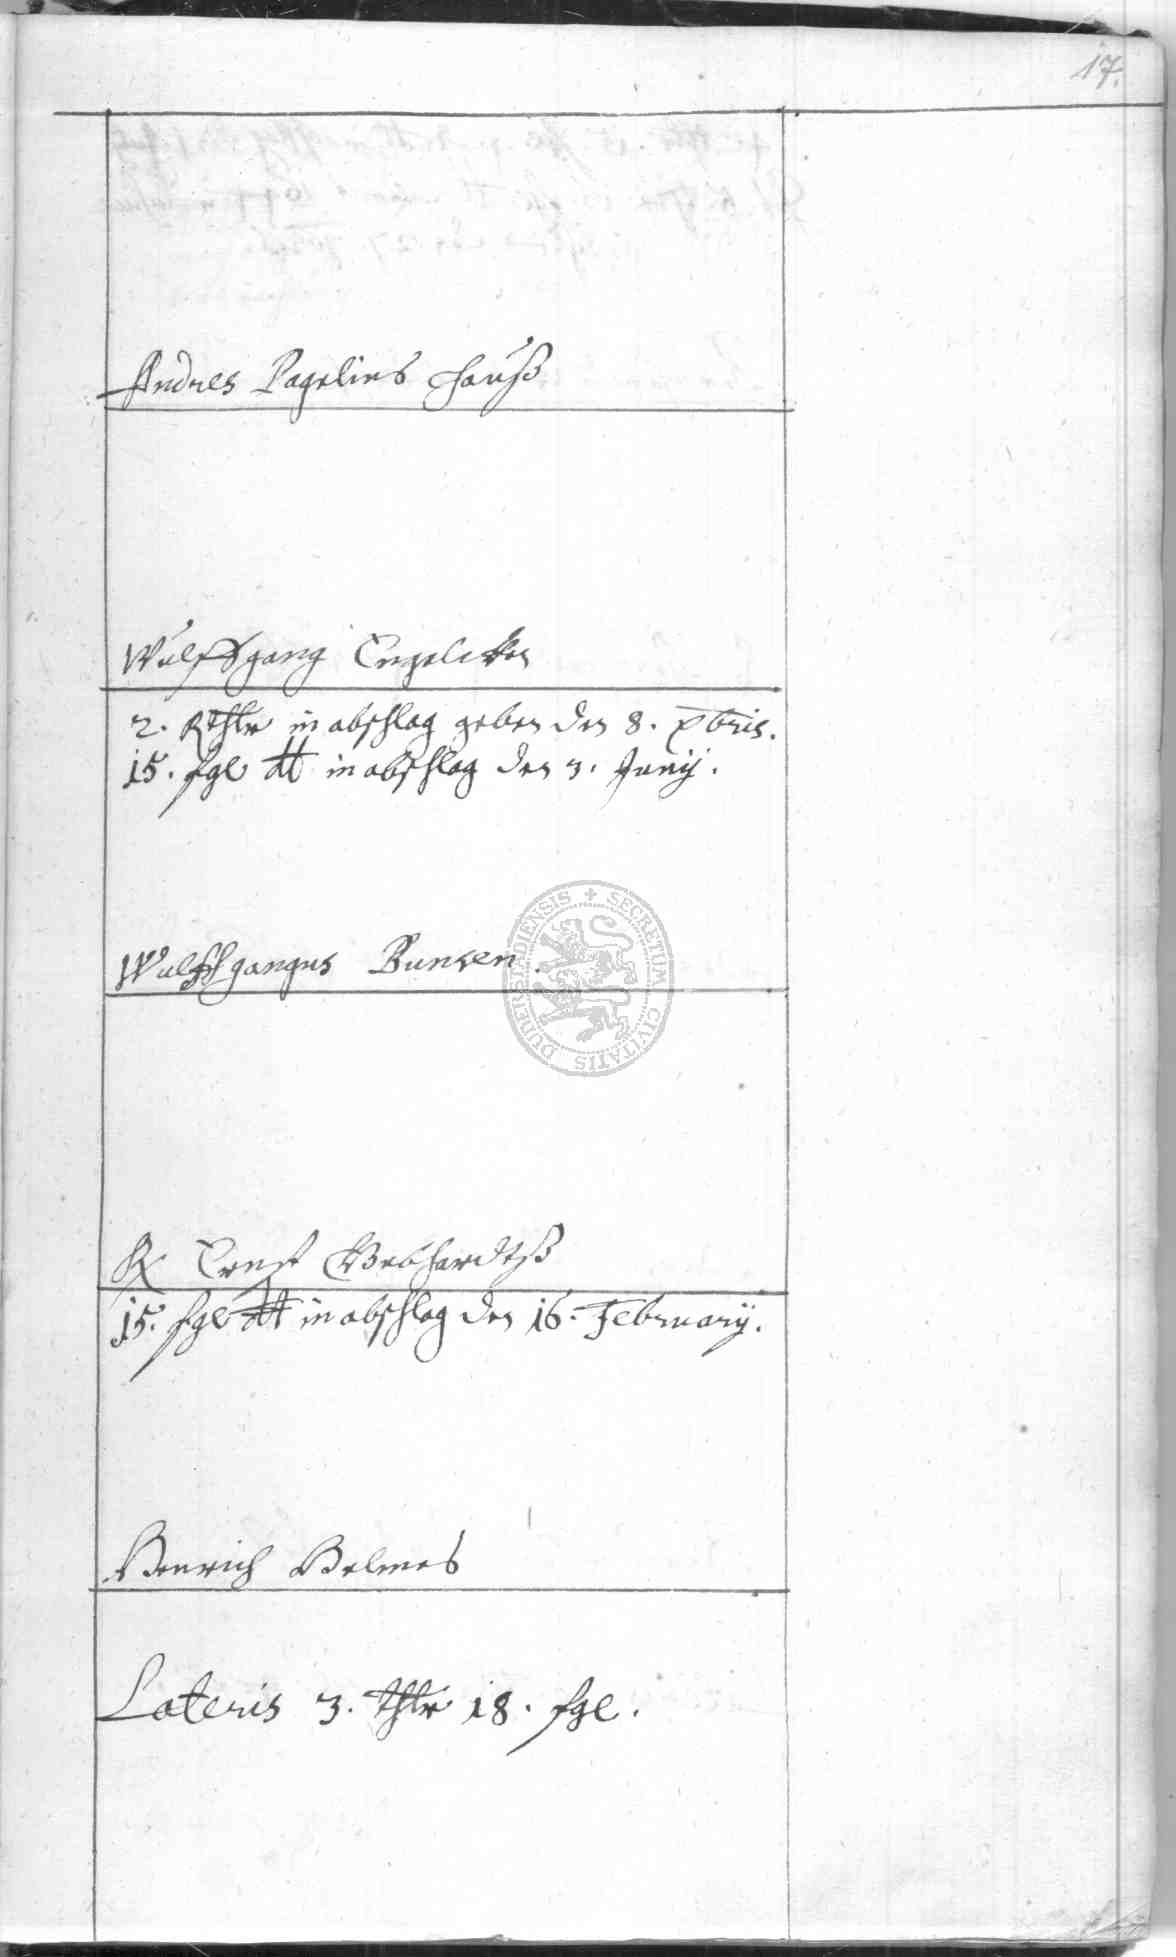 17.
Andres Pagelins Hauß
Wulffgang Engelcken
2. Rthlr in abschlag geben den 8. Xbris.
15. fgl dt in abschlag den 3. Junÿ.
Wulffgangus Bunsen.
SECRETUM CIVITATIS DUDERSTADIENSIS
Ernst Gebhardtß
15. fgl dt in abschlag den 16. Februarÿ.
Henrich Belmes
Lateris 3. thlr 18. fgl.